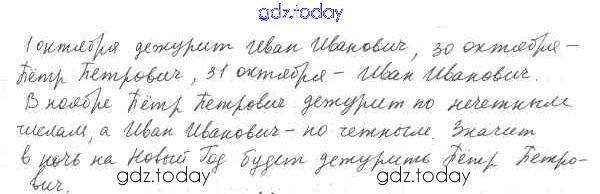 gdz.today
1 октября дежурит Иван Иванович, 30 октября –
Пётр Петрович, 31 октября – Иван Иванович.
В ноябре Пётр Петрович дежурит по нечетным
числам, а Иван Иванович – по четным. Значит
в ночь на Новый Год будет дежурить Пётр Петро-
вич.
gdz.today gdz.today